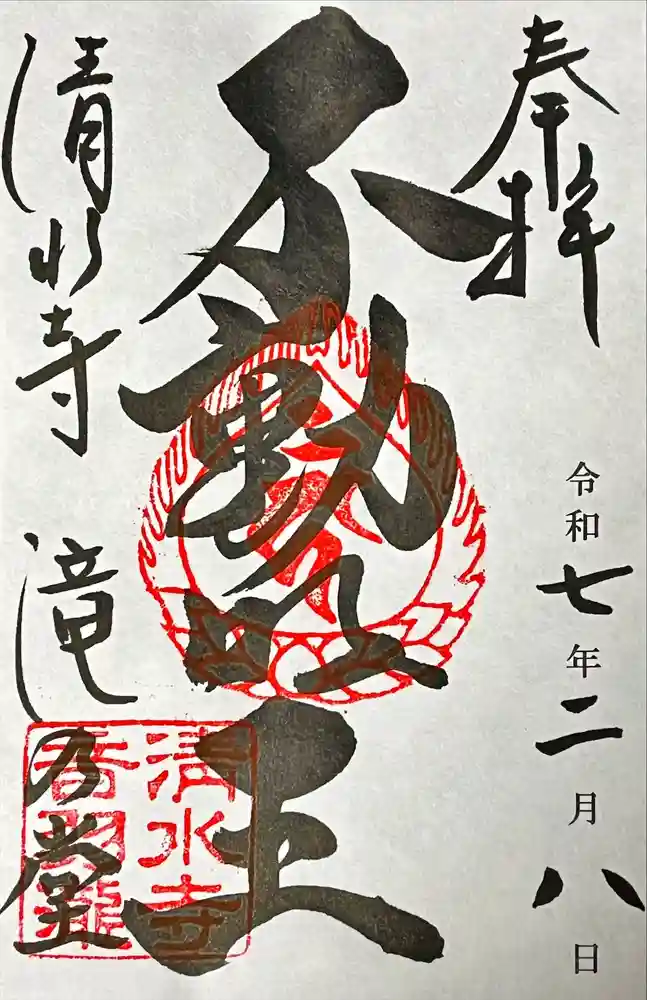 奉拝
令和七年二月八日
不動明王
清水寺 滝乃堂
清水寺
音羽瀧